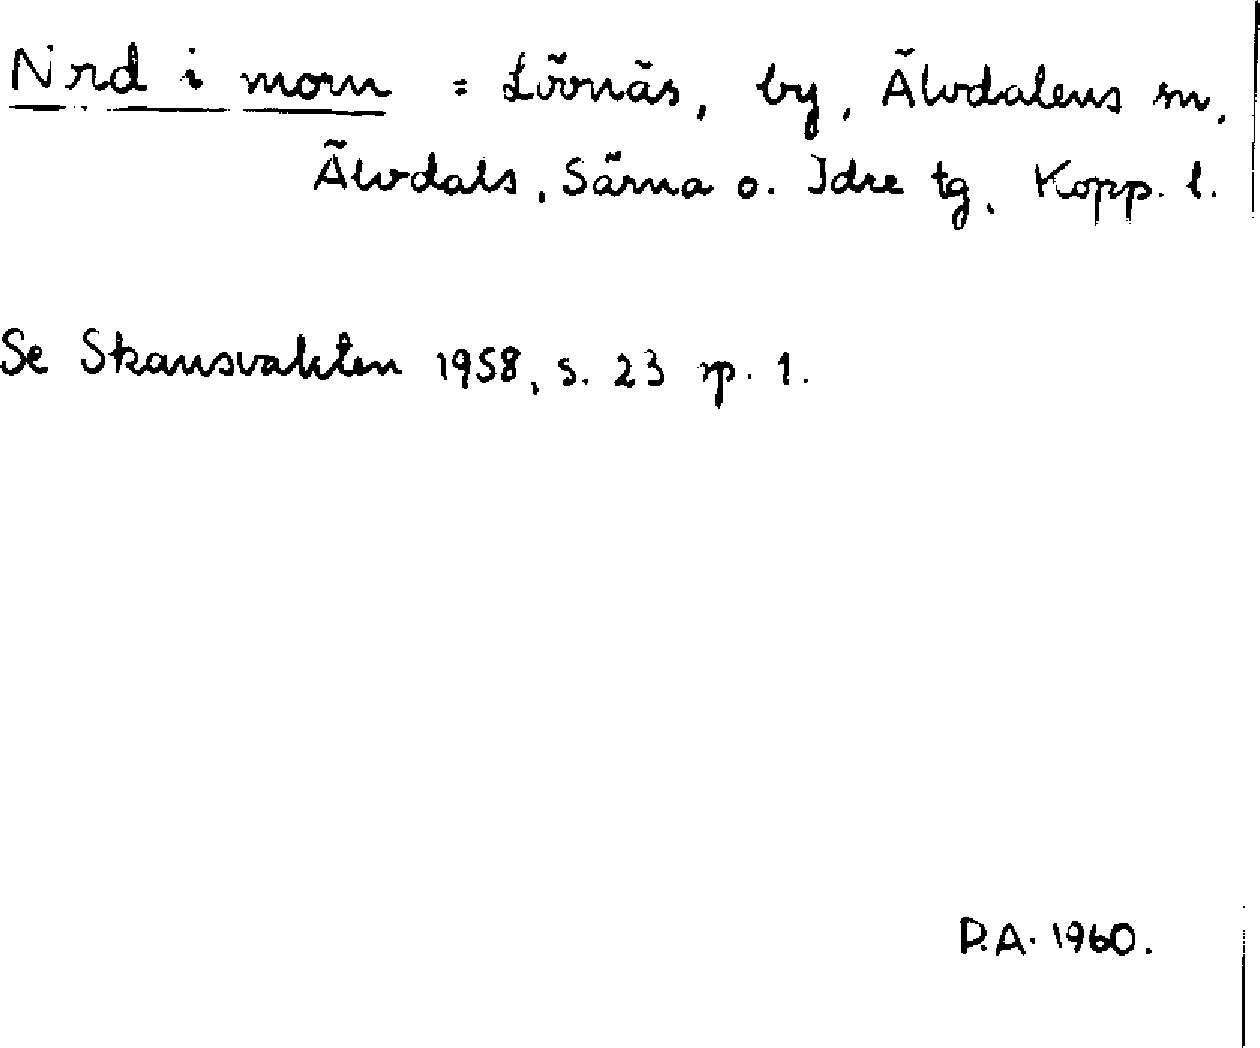 Nrd i morn = Lövnäs, by, Älvdalens sn,
Älvdals, Särna o. Idre tg, Kopp. l.
Se Skansvakten 1958, s. 23 sp. 1.
P.A. 1960.